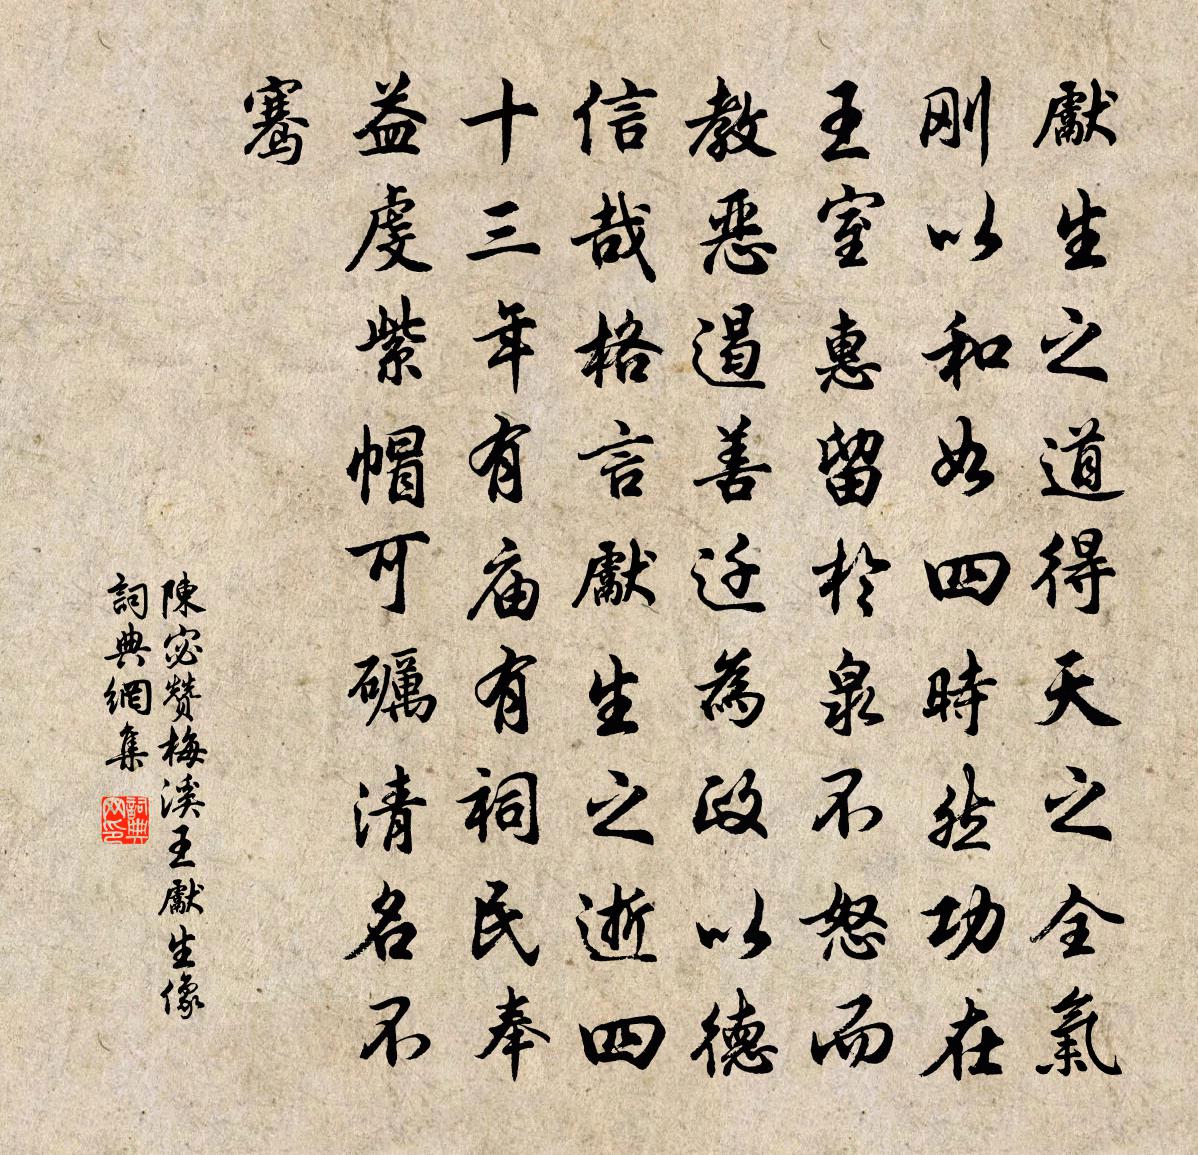 獻生之道得天之全氣
剛以和如四時然功在
王室惠留於泉不怒而
教惡遏善迁為政以德
信哉格言獻生之逝四
十三年有庙有祠民奉
益虔紫帽可礪清名不
騫
陳宓赞梅溪王獻生像
詞典網集
詞典网印